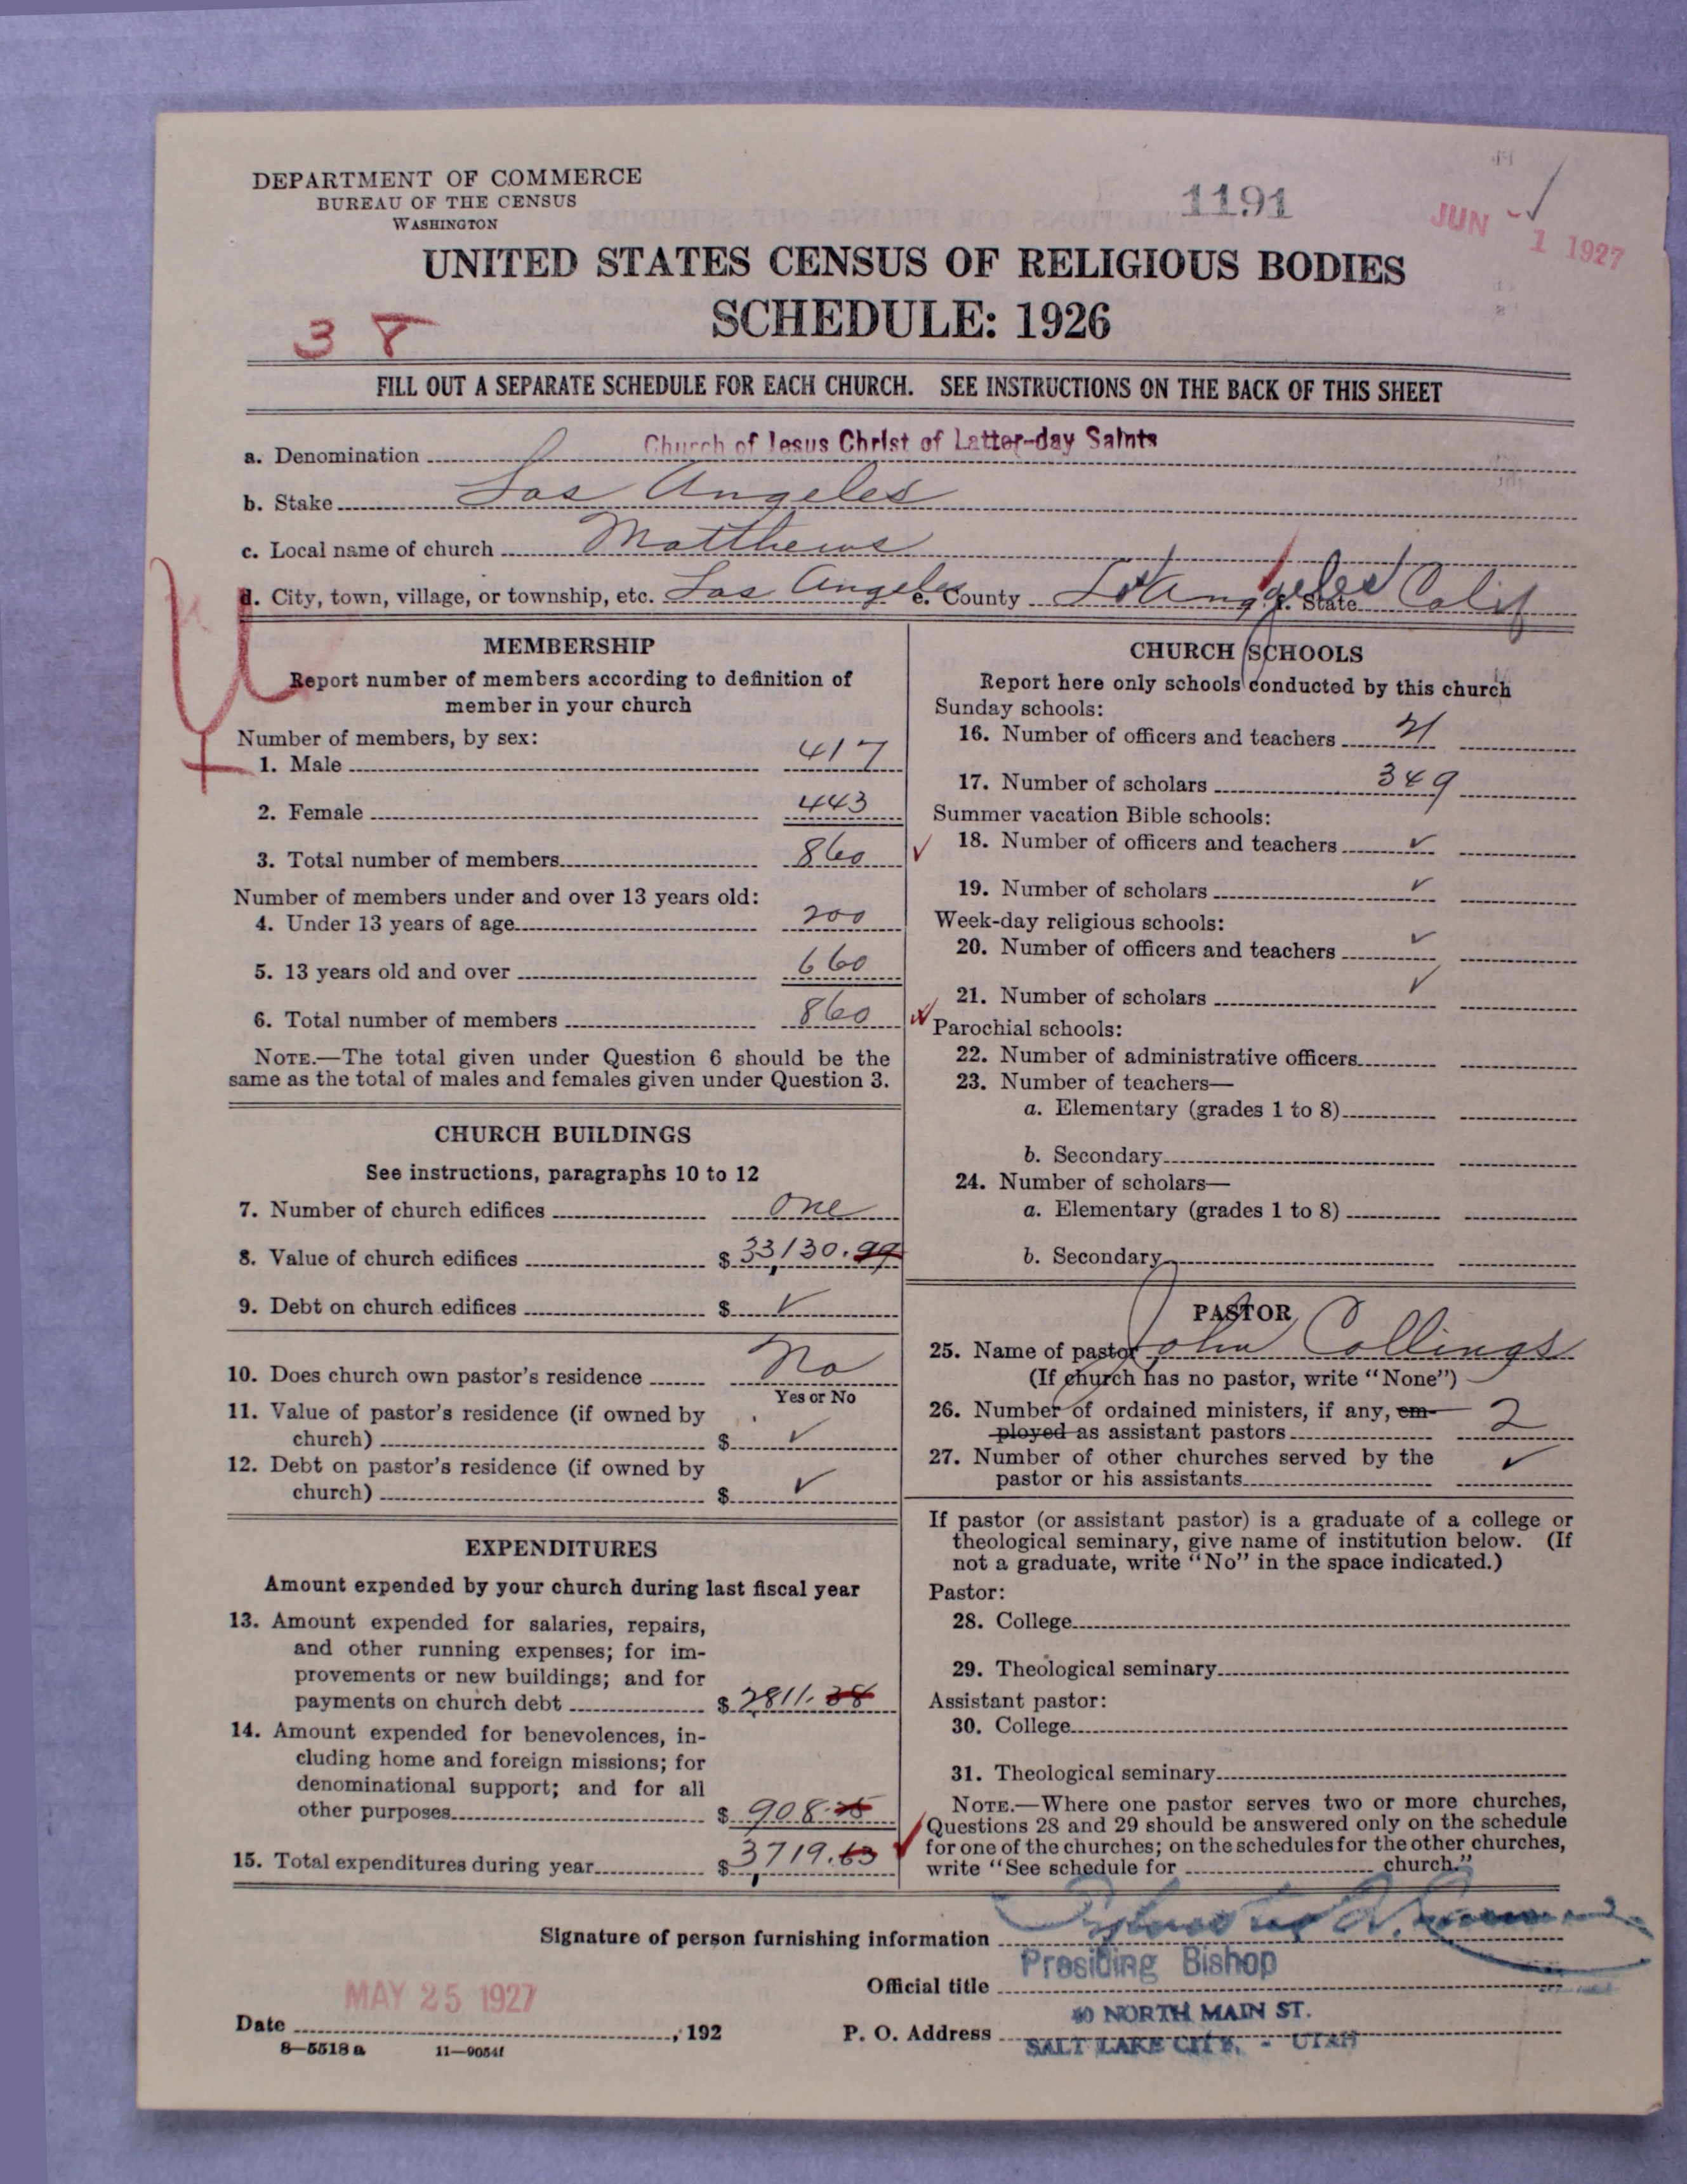 DEPARTMENT OF COMMERCE
BUREAU OF THE CENSUS
WASHINGTON
1191
JUN - 1 1927
UNITED STATES CENSUS OF RELIGIOUS BODIES
SCHEDULE: 1926
3 8
FILL OUT A SEPARATE SCHEDULE FOR EACH CHURCH. SEE INSTRUCTIONS ON THE BACK OF THIS SHEET
a. Denomination Church of Jesus Christ of Latter-day Saints
b. Stake Los Angeles
c. Local name of church Matthews
d. City, town, village, or township, etc. Los Angeles e. County Los Angeles f. State Calif
MEMBERSHIP
Report number of members according to definition of
member in your church
Number of members, by sex:
1. Male 417
2. Female 443
3. Total number of members 860
Number of members under and over 13 years old:
4. Under 13 years of age 200
5. 13 years old and over 660
6. Total number of members 860
NOTE.—The total given under Question 6 should be the
same as the total of males and females given under Question 3.
CHURCH BUILDINGS
See instructions, paragraphs 10 to 12
7. Number of church edifices one
8. Value of church edifices $ 33,130.99
9. Debt on church edifices $ ✓
10. Does church own pastor's residence No
Yes or No
11. Value of pastor's residence (if owned by
church) $ ✓
12. Debt on pastor's residence (if owned by
church) $ ✓
EXPENDITURES
Amount expended by your church during last fiscal year
13. Amount expended for salaries, repairs,
and other running expenses; for im-
provements or new buildings; and for
payments on church debt $ 2,811.38
14. Amount expended for benevolences, in-
cluding home and foreign missions; for
denominational support; and for all
other purposes $ 908.25
15. Total expenditures during year $ 3,719.63
CHURCH SCHOOLS
Report here only schools conducted by this church
Sunday schools:
16. Number of officers and teachers 21
17. Number of scholars 349
Summer vacation Bible schools:
18. Number of officers and teachers ✓
19. Number of scholars ✓
Week-day religious schools:
20. Number of officers and teachers ✓
21. Number of scholars ✓
Parochial schools:
22. Number of administrative officers
23. Number of teachers—
a. Elementary (grades 1 to 8)
b. Secondary
24. Number of scholars—
a. Elementary (grades 1 to 8)
b. Secondary
PASTOR
25. Name of pastor John Collings
(If church has no pastor, write "None")
26. Number of ordained ministers, if any, em-
ployed as assistant pastors 2
27. Number of other churches served by the
pastor or his assistants ✓
If pastor (or assistant pastor) is a graduate of a college or
theological seminary, give name of institution below. (If
not a graduate, write "No" in the space indicated.)
Pastor:
28. College
29. Theological seminary
Assistant pastor:
30. College
31. Theological seminary
NOTE.—Where one pastor serves two or more churches,
Questions 28 and 29 should be answered only on the schedule
for one of the churches; on the schedules for the other churches,
write "See schedule for church."
Signature of person furnishing information
Official title Presiding Bishop
MAY 25 1927
Date , 192
P. O. Address 40 NORTH MAIN ST.
SALT LAKE CITY, - UTAH
8—5518 a 11—9054f